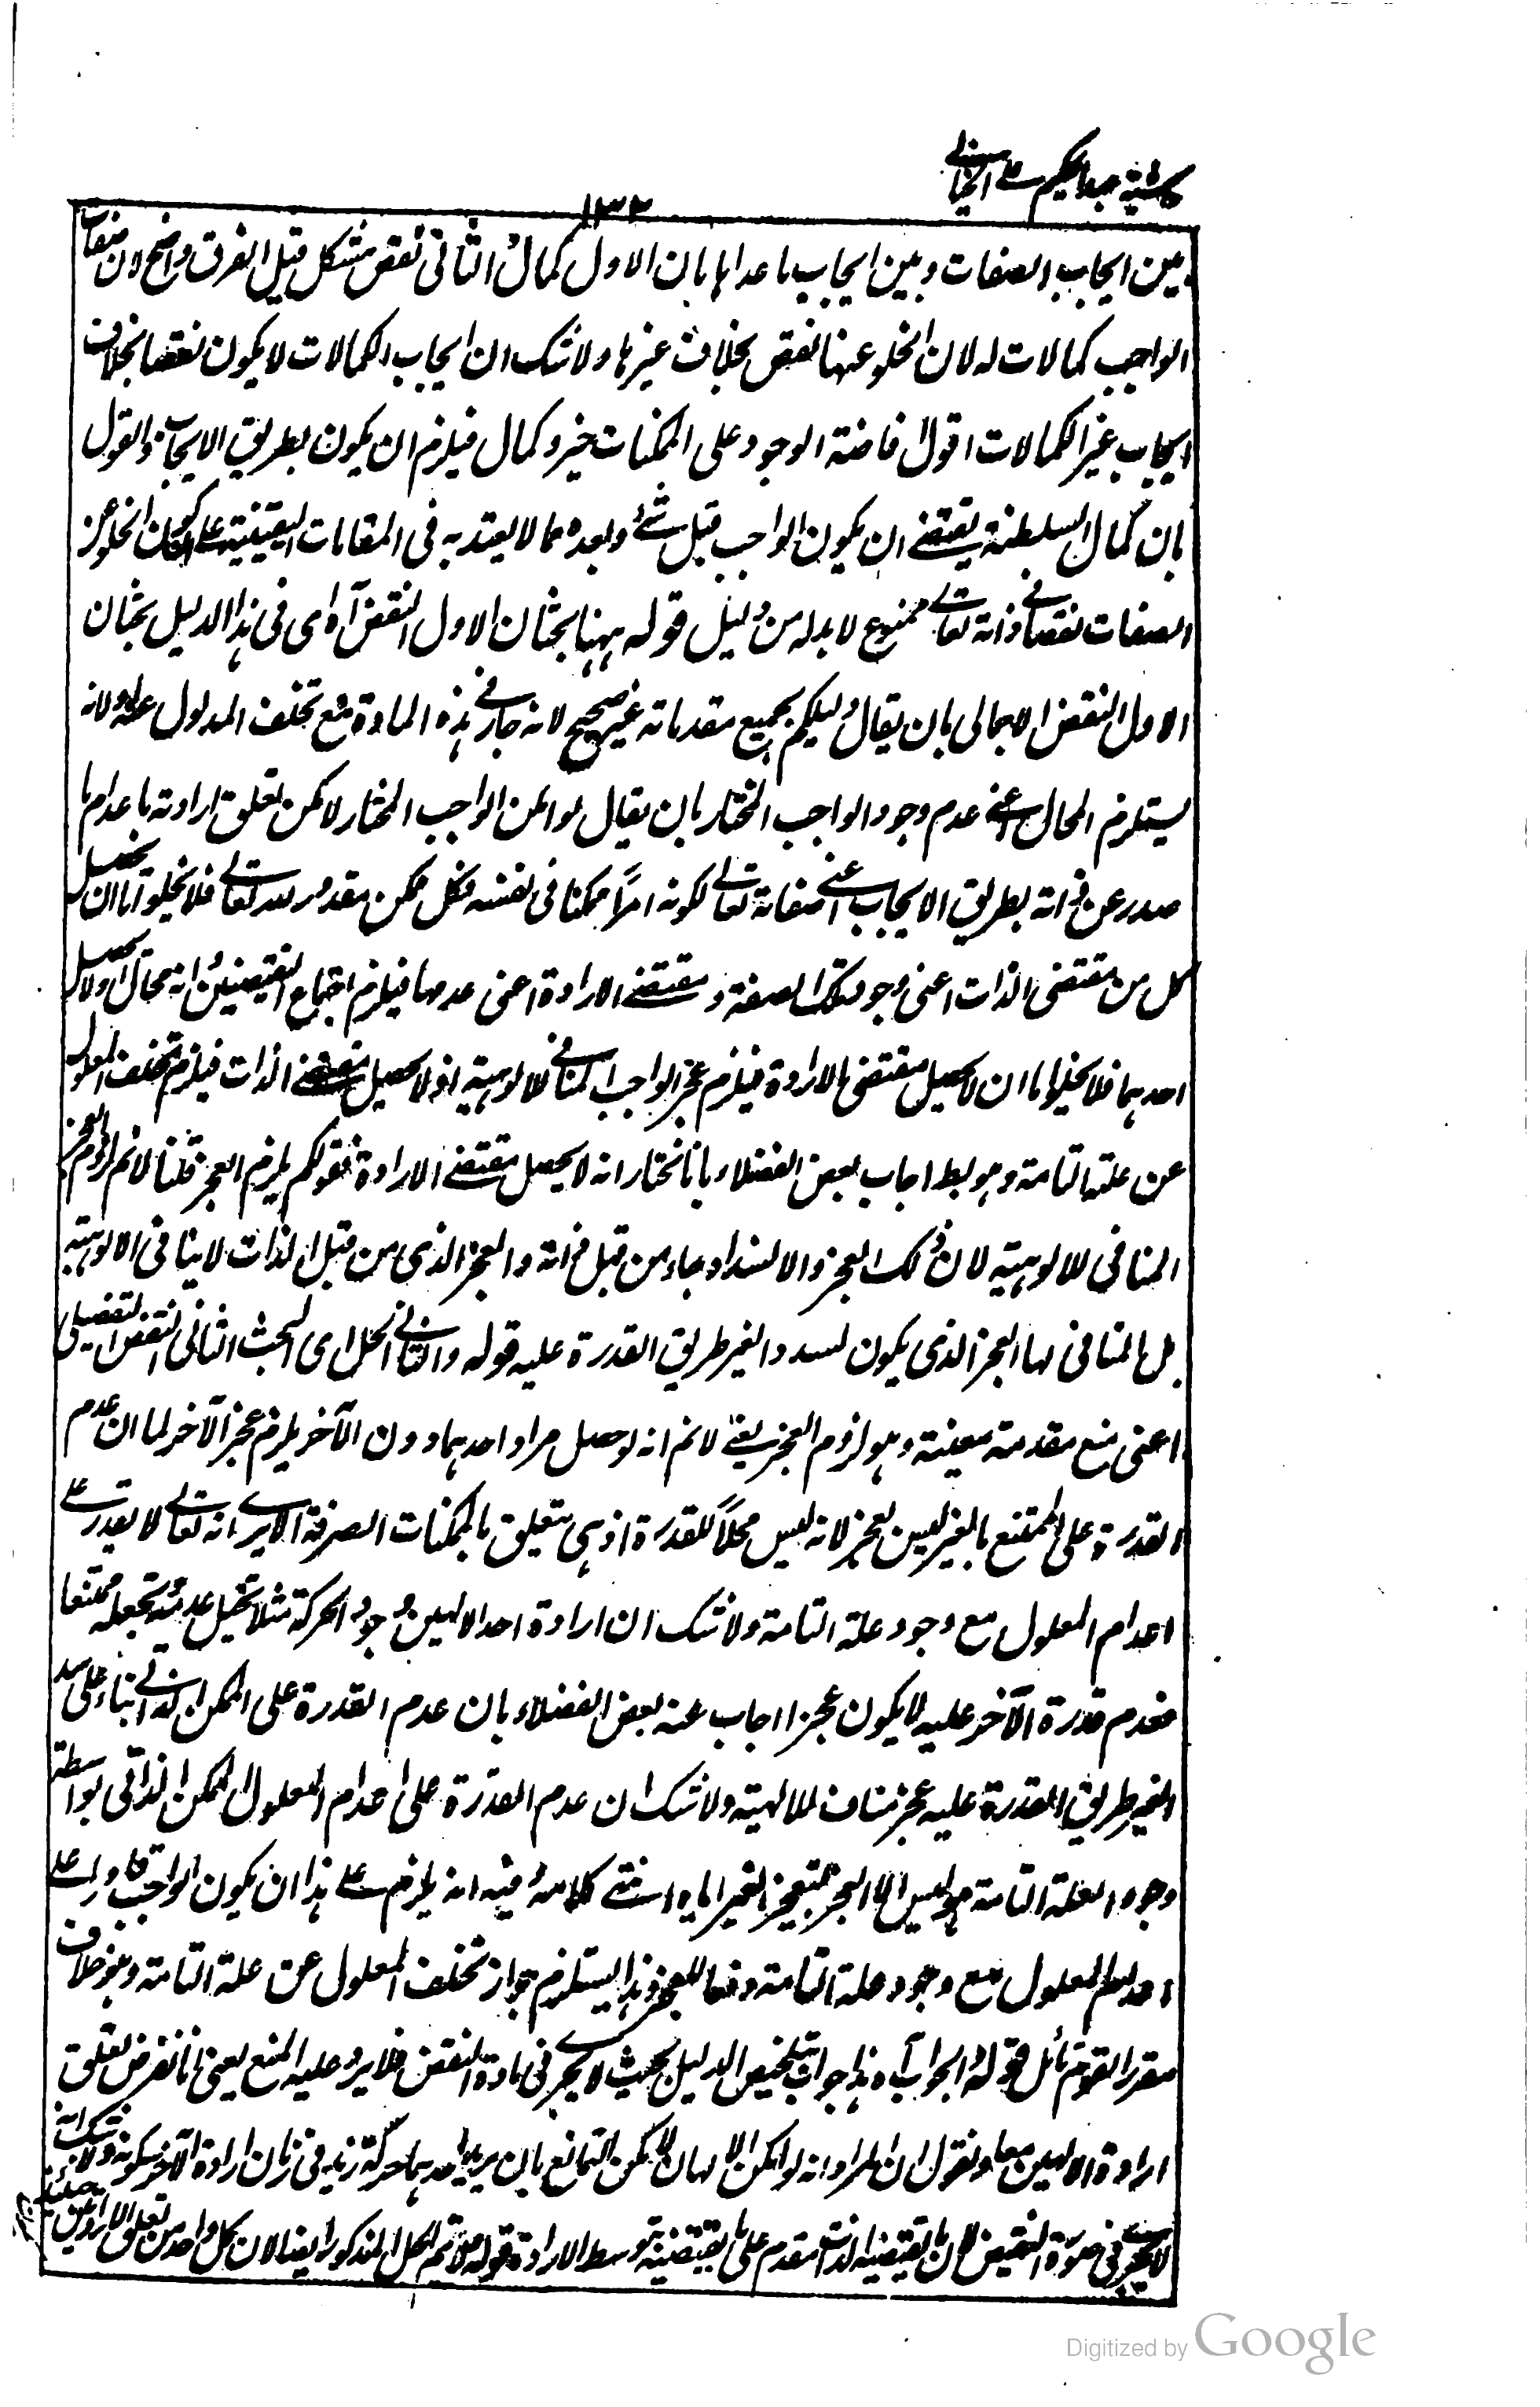 حاشية عبد الحكيم على الخيالي
١٣٢
بين ايجاب الصفات وبين ايجاب ما عداها بان الاول كمال والثاني نقص مشكل قيل الفرق واضح لان صفات
الواجب كمالات له لان الخلو عنها نقص بخلاف غيرها ولا شك ان ايجاب الكمالات لا يكون نقصا بخلاف
ايجاب غير الكمالات اقول افاضة الوجود على الممكنات خير وكمال فيلزم ان يكون بطريق الايجاب والقول
بان كمال السلطنة يقتضى ان يكون الواجب قبل كل شئ وبعده مما لا يعتد به فى المقامات اليقينية على ان كون الخلو عن
الصفات نقصا فى ذاته تعالى ممنوع لا بد له من دليل قوله ههنا بحثان الاول النقض آه اى فى هذا الدليل بحثان
الاول النقض الاجمالى بان يقال دليلكم بجميع مقدماته غير صحيح لانه جار فى هذه المادة مع تخلف المدلول عنه ولانه
يستلزم المحال اعنى عدم وجود الواجب المختار بان يقال لو امكن الواجب المختار لامكن تعلق ارادته باعدام ما
صدر عن ذاته بطريق الايجاب اعنى صفاته تعالى لكونه امرا ممكنا فى نفسه فكل ممكن مقدور لله تعالى فلا يخلو اما ان يحصل
كل من مقتضى الذات اعنى وجود تلك الصفة ومقتضى الارادة اعنى عدمها فيلزم اجتماع النقيضين وانه محال او لا يحصل
احدهما فلا يخلو اما ان لا يحصل مقتضى الارادة فيلزم عجز الواجب المنافى للالوهية او لا يحصل مقتضى الذات فيلزم تخلف المعلول
عن علته التامة وهو بط اجاب بعض الفضلاء بانا نختار انه لا يحصل مقتضى الارادة فقولكم يلزم العجز قلنا لا نم لزوم العجز
المنافى للالوهية لان ذلك العجز والانسداد جاء من قبل ذاته والعجز الذى من قبل الذات لا ينافى الالوهية
بل المنافى لها العجز الذى يكون لسد الغير طريق القدرة عليه قوله والثانى الحل اى البحث الثانى النقض التفصيلى
اعنى منع مقدمة معينة وهو لزوم العجز يعنى لا نم انه لو حصل مراد احدهما دون الآخر يلزم عجز الآخر لما ان عدم
القدرة على الممتنع بالغير ليس بعجز لانه ليس محلا للقدرة اذ هى تتعلق بالممكنات الصرفة الا يرى انه تعالى لا يقدر على
اعدام المعلول مع وجود علته التامة ولا شك ان ارادة احد الالهين وجود الحركة مثلا تحيل عدمه وتجعله ممتنعا
فعدم قدرة الآخر عليه لا يكون عجزا اجاب عنه بعض الفضلاء بان عدم القدرة على الممكن الذاتى بناء على سد
الغير طريق القدرة عليه عجز مناف للالهية ولا شك ان عدم القدرة على اعدام المعلول الممكن الذاتى بواسطة
وجود العلة التامة هو ليس الا العجز بتعجيز الغير اياه انتهى كلامه وفيه انه يلزم على هذا ان يكون الواجب قادرا على
اعدام المعلول مع وجود علته التامة دفعا للعجز وهذا يستلزم جواز تخلف المعلول عن علته التامة وهو خلاف
مقرر القوم تأمل قوله والجواب آه هذا جواب بتلخيص الدليل بحيث لا يجرى فى مادة النقض فلا يرد عليه المنع يعنى انا نفرض تعلق
ارادة الالهين معا ونقول ان المراد انه لو امكن الالهان لامكن التمانع بان يريد احدهما حركة زيد فى زمان ارادة الآخر سكونه ولا شك انه
لا يجرى فى صورة النقيض لان ما يقتضيه الذات مقدم على ما يقتضيه بتوسط الارادة قوله فلا تم الحل المذكور ايضا لان كل واحد من تعلق الارادتين حينئذ